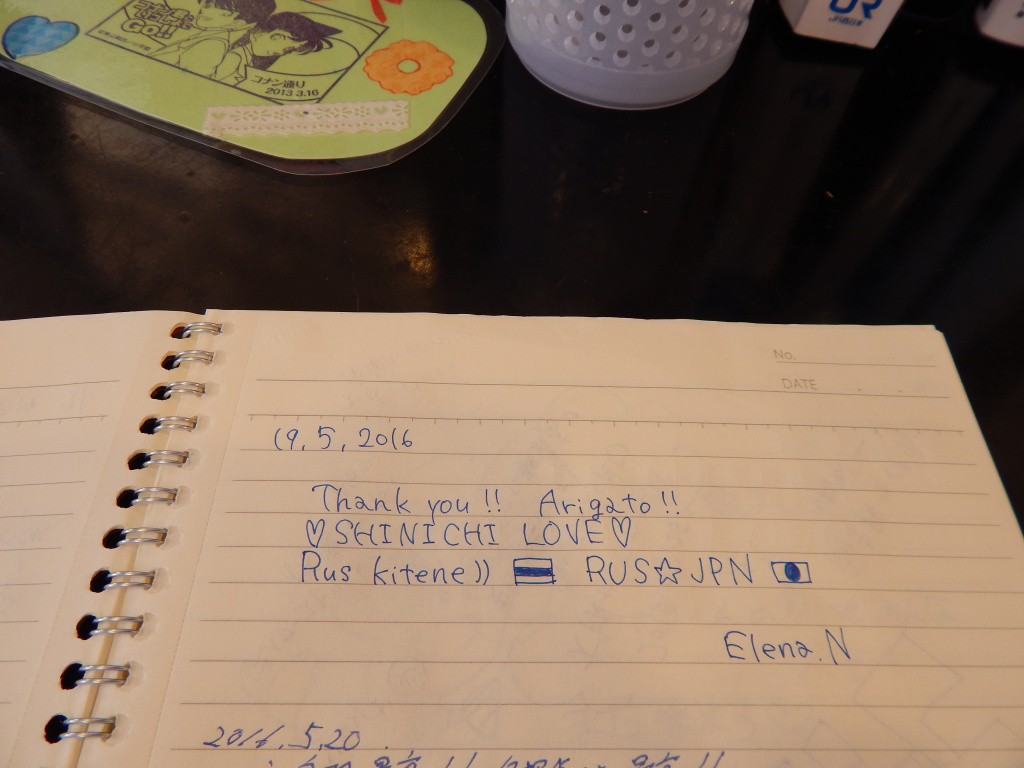 GO!!
コナン通り
2013 3.16
UR
JR西日本
No.
DATE
19, 5, 2016
Thank you!! Arigato!!
♡SHINICHI LOVE♡
Rus kitene)) RUS☆JPN
Elena.N
2016.5.20.